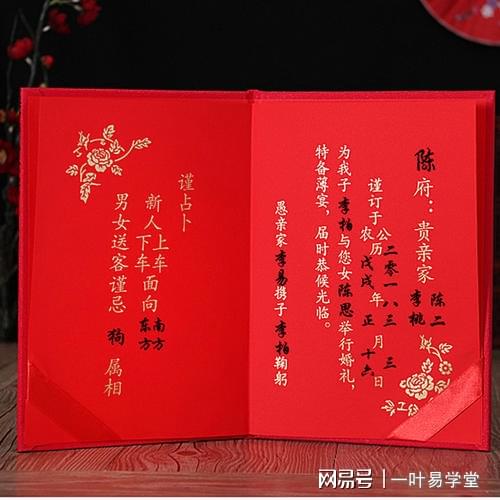 陈府：贵亲家 陈二 李桃
谨订于公农历二零一八戊戌年三正月三十六日
为我子李柏与您女陈思举行婚礼，
特备薄宴，届时恭候光临。
愚亲家李易携子李柏鞠躬
谨占卜
新人上车下车面向南方东方
男女送客谨忌 狗 属相
网易号 | 一叶易学堂